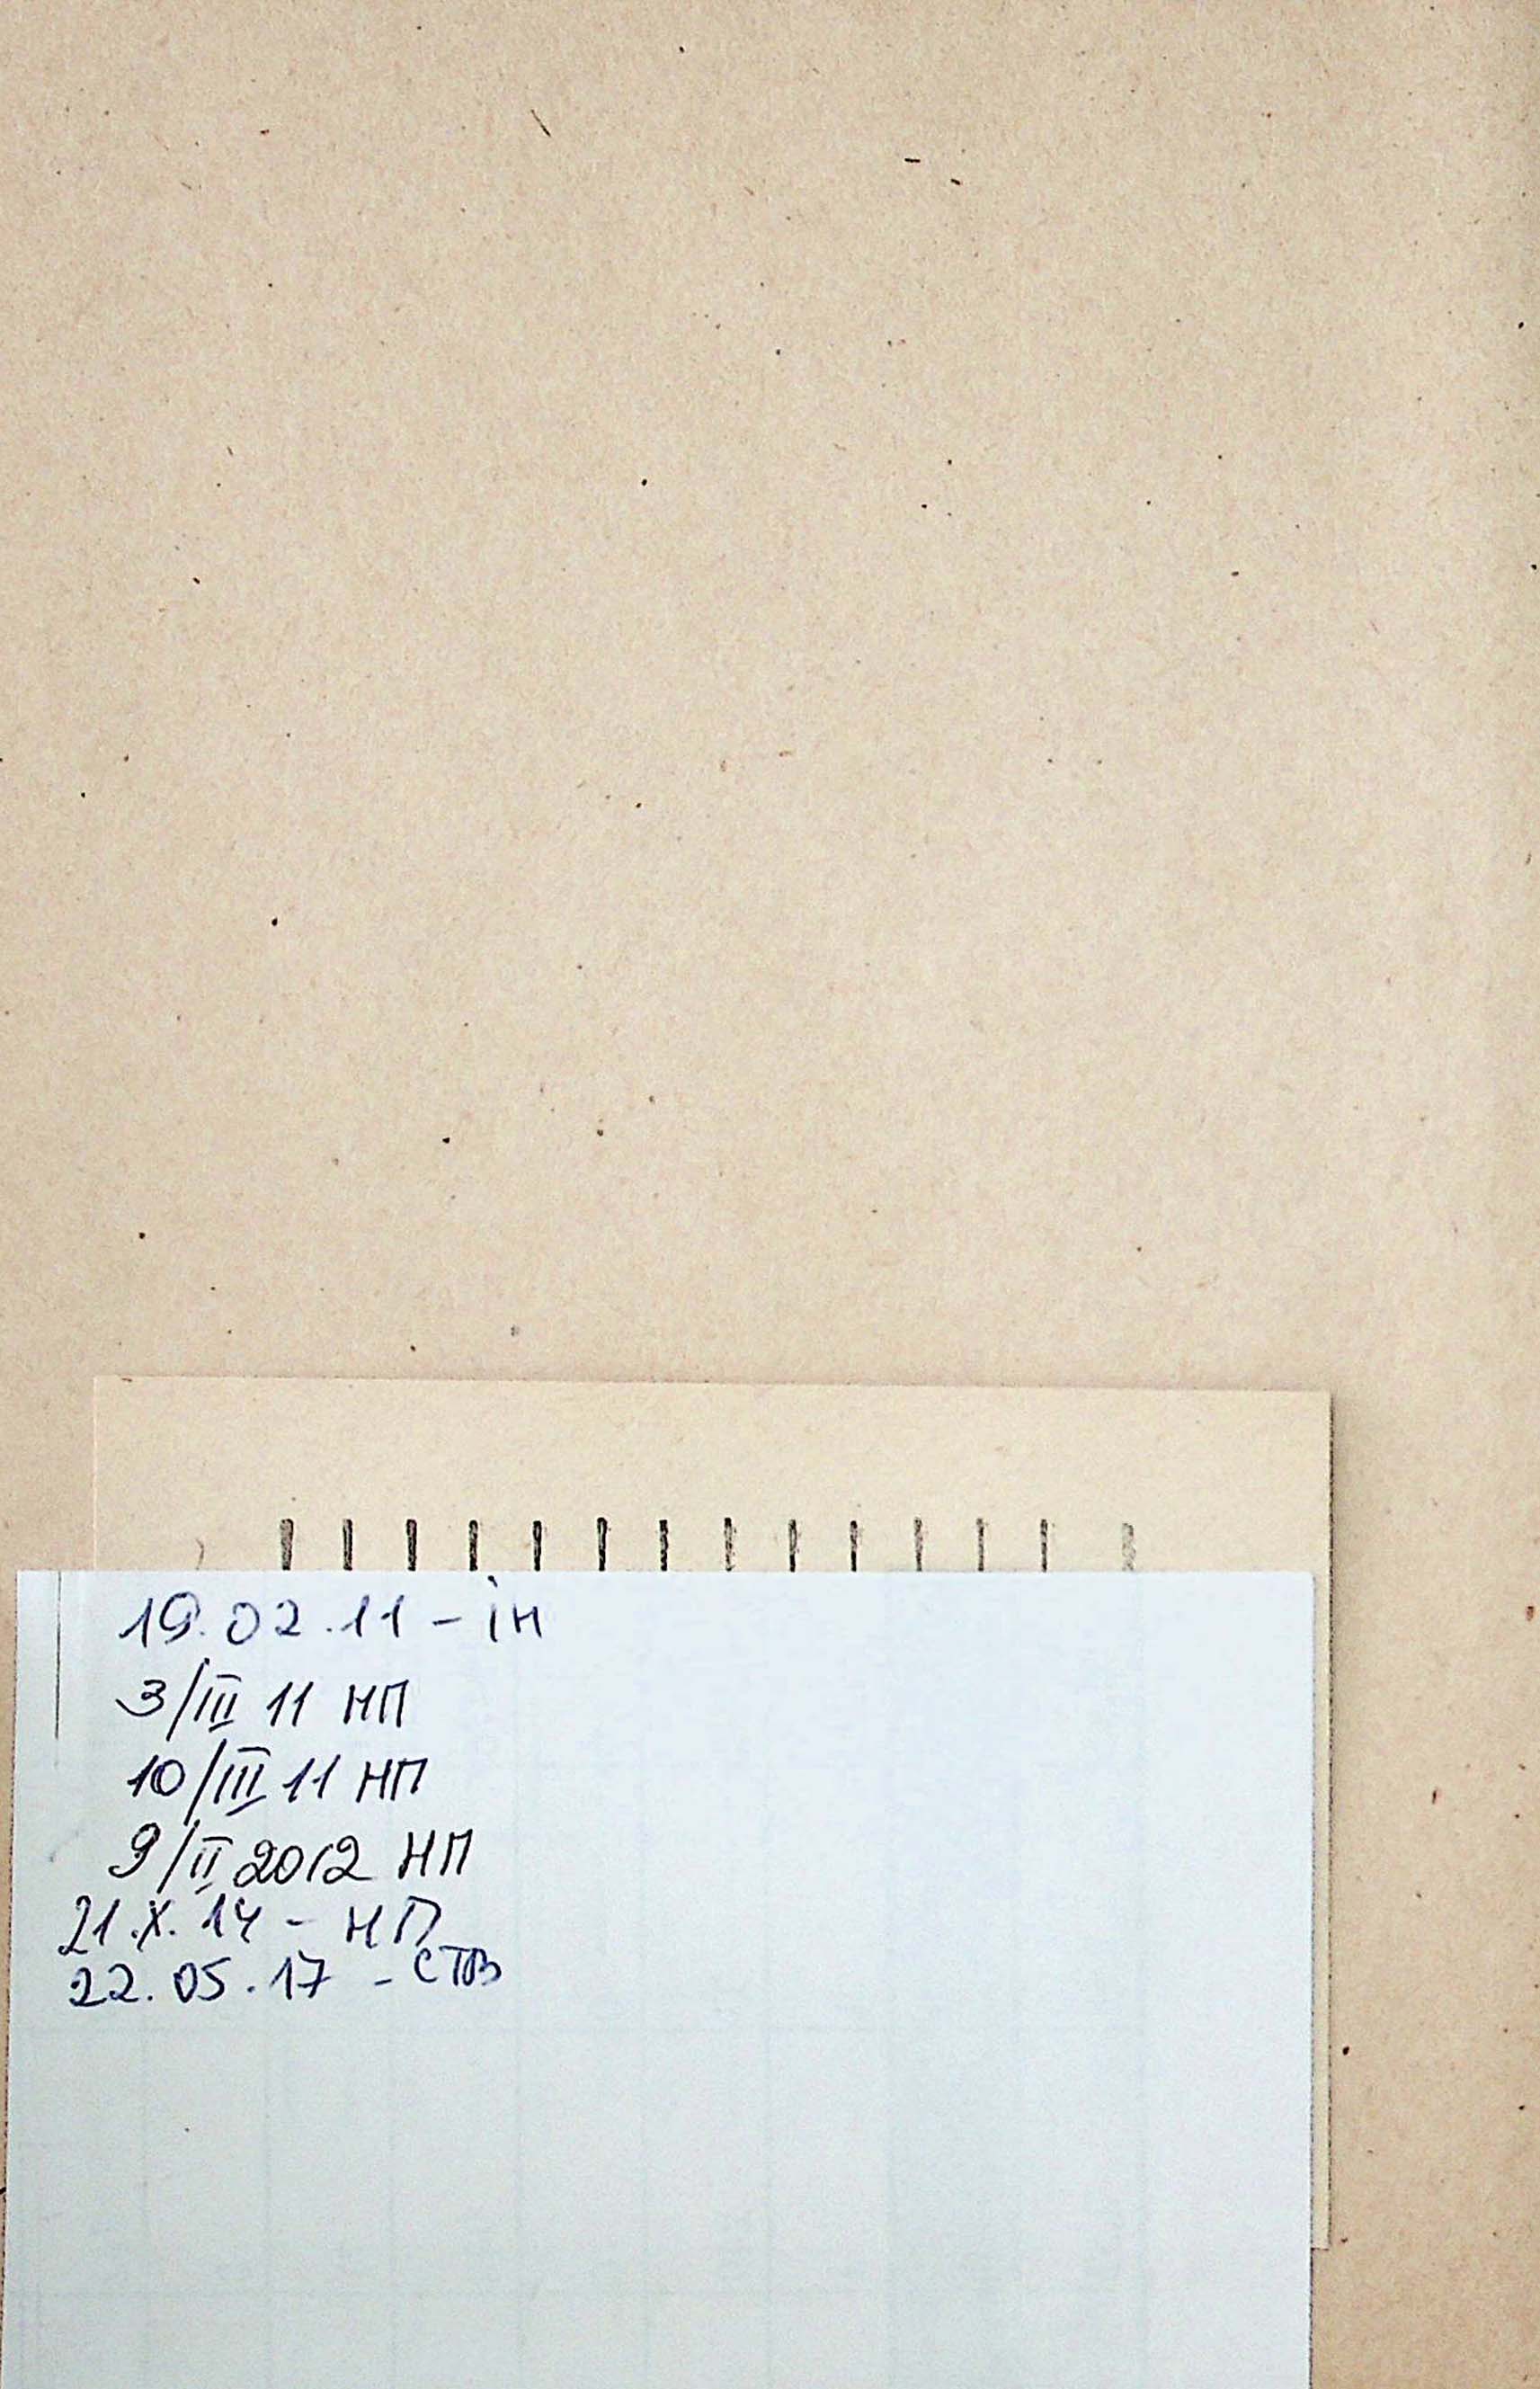 19.02.11 - ін
3/III 11 НП
10/III 11 НП
9/II 2012 НП
21.X.14 - НП
22.05.17 - СТВ